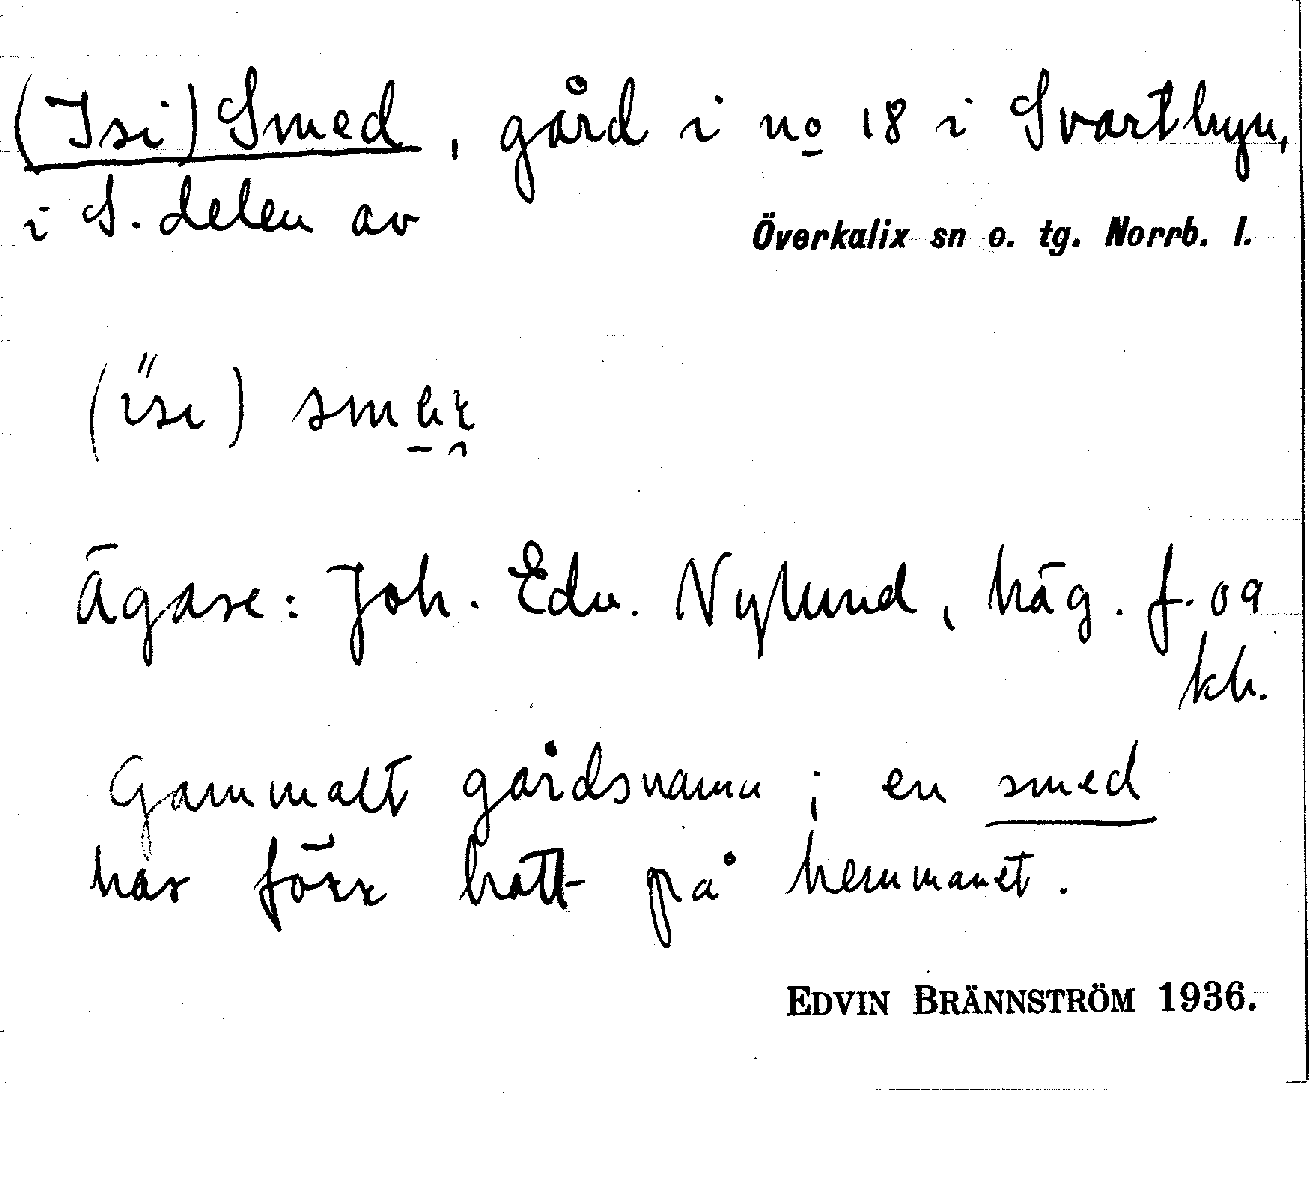 (Isi) Smed, gård i no 18 i Svartbyn,
i S. delen av Överkalix sn o. tg. Norrb. l.
(isi)
Ägare: Joh. Edv. Nylund, häg. f. 09
kb.
Gammalt gårdsnamn; en smed
har förr bott på hemmanet.
EDVIN BRÄNNSTRÖM 1936.